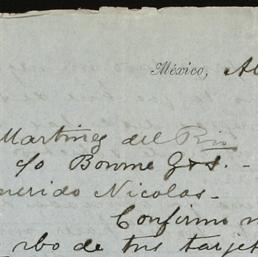 México, Ab
Martinez del Rio
c/o Bonme G & S. -
Querido Nicolas -
Confirmo m
rbo de tus tarjet